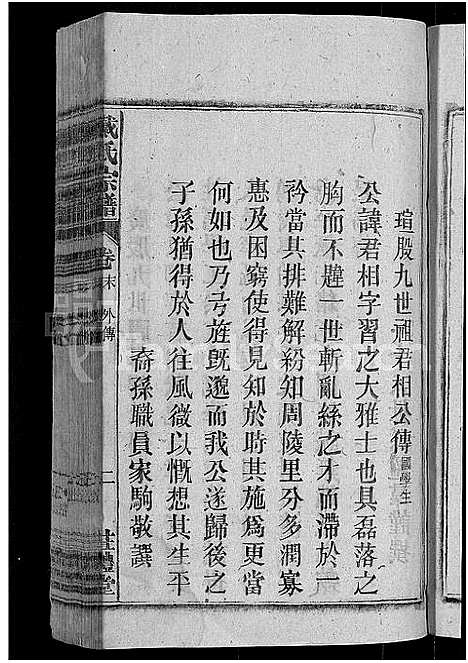 瑄股九世祖君相公傳國學生
公諱君相字習之大雅士也具磊落之
胸而不韙一世斬亂絲之才而滯於一
衿當其排難解紛知周陵里分多潤寡
惠及困窮使得見知於時其施爲更當
何如也乃弓旌既邈而我公遂歸後之
子孫猶得於人往風徵以慨想其生平
裔孫職員家駒敬譔
戴氏宗譜
卷末 外傳
二